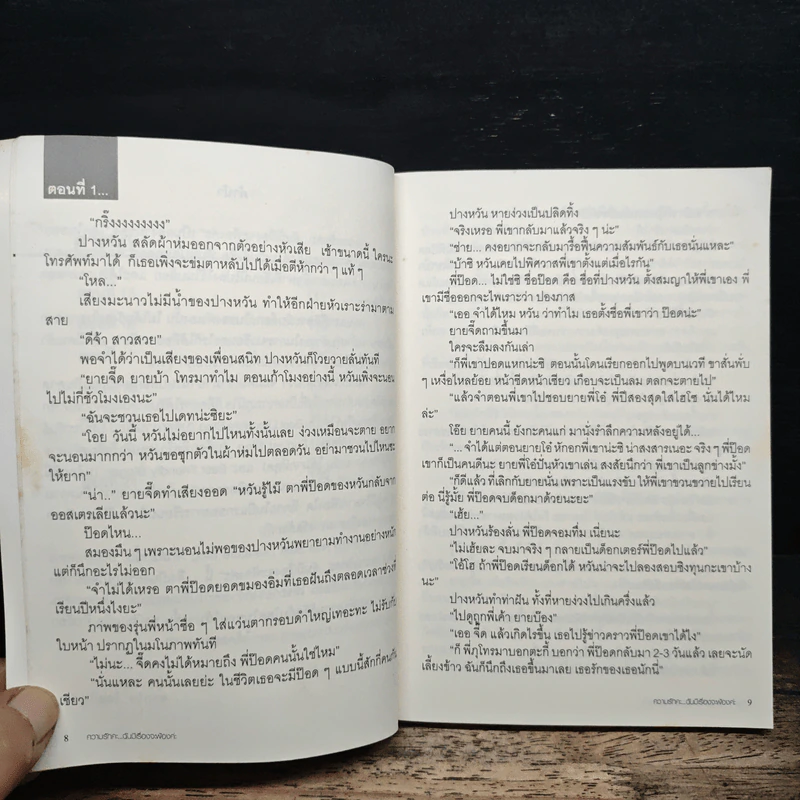 ตอนที่ 1...
“กริ๊งงงงงงงงง”
ปางหวัน สลัดผ้าห่มออกจากตัวอย่างหัวเสีย เช้าขนาดนี้ ใครนะ
โทรศัพท์มาได้ ก็เธอเพิ่งจะข่มตาหลับไปได้เมื่อตีห้ากว่า ๆ แท้ ๆ
“โหล...”
เสียงมะนาวไม่มีน้ำของปางหวัน ทำให้อีกฝ่ายหัวเราะร่ามาตาม
สาย
“ดีจ้า สาวสวย”
พอจำได้ว่าเป็นเสียงของเพื่อนสนิท ปางหวันก็โวยวายลั่นทันที
“ยายจี๊ด ยายบ้า โทรมาทำไม ตอนเก้าโมงอย่างนี้ หวันเพิ่งจะนอน
ไปไม่กี่ชั่วโมงเองนะ”
“ฉันจะชวนเธอไปเดทน่ะซิยะ”
“โอย วันนี้ หวันไม่อยากไปไหนทั้งนั้นเลย ง่วงเหมือนจะตาย อยาก
จะนอนมากกว่า หวันขอซุกตัวในผ้าห่มไปตลอดวัน อย่ามาชวนไปไหนซะ
ให้ยาก”
“น่า..” ยายจี๊ดทำเสียงออด “หวันรู้ไม๊ ตาพี่ป๊อดของหวันกลับจาก
ออสเตรเลียแล้วนะ”
ป๊อดไหน...
สมองมึน ๆ เพราะนอนไม่พอของปางหวันพยายามทำงานอย่างหนัก
แต่ก็นึกอะไรไม่ออก
“จำไม่ได้เหรอ ตาพี่ป๊อดยอดขมองอิ่มที่เธอฝันถึงตลอดเวลาช่วงที่
เรียนปีหนึ่งไงยะ”
ภาพของรุ่นพี่หน้าซื่อ ๆ ใส่แว่นตากรอบดำใหญ่เทอะทะ ไม่รับกับ
ใบหน้า ปรากฏในมโนภาพทันที
“ไม่นะ... จี๊ดคงไม่ได้หมายถึง พี่ป๊อดคนนั้นใช่ไหม”
“นั่นแหละ คนนั้นเลยย่ะ ในชีวิตเธอจะมีป๊อด ๆ แบบนี้สักกี่คนกัน
เชียว”
8 ความรักคะ...ฉันมีเรื่องจะฟ้องค่ะ
ปางหวัน หายง่วงเป็นปลิดทิ้ง
“จริงเหรอ พี่เขากลับมาแล้วจริง ๆ น่ะ”
“ช่าย... คงอยากจะกลับมารื้อฟื้นความสัมพันธ์กับเธอนั่นแหละ”
“บ้าซิ หวันเคยไปพิศวาสพี่เขาตั้งแต่เมื่อไรกัน”
พี่ป๊อด... ไม่ใช่ซิ ชื่อป๊อด คือ ชื่อที่ปางหวัน ตั้งสมญาให้พี่เขาเอง พี่
เขามีชื่อออกจะไพเราะว่า ปองภาส
“เออ จำได้ไหม หวัน ว่าทำไม เธอตั้งชื่อพี่เขาว่า ป๊อดน่ะ”
ยายจี๊ดถามขึ้นมา
ใครจะลืมลงกันเล่า
“ก็พี่เขาปอดแหกน่ะซิ ตอนนั้นโดนเรียกออกไปพูดบนเวที ขาสั่นพั่บ
ๆ เหงื่อไหลย้อย หน้าซีดหน้าเซียว เกือบจะเป็นลม ตลกจะตายไป”
“แล้วจำตอนพี่เขาไปชอบยายพี่โอ๋ พี่ปีสองสุดใสไฮโซ นั่นได้ไหม
ล่ะ”
โอ๊ย ยายคนนี้ ยังกะคนแก่ มานั่งรำลึกความหลังอยู่ได้...
“... จำได้แต่ตอนยายโอ๋ หักอกพี่เขาน่ะซิ น่าสงสารเนอะ จริง ๆ พี่ป๊อด
เขาก็เป็นคนดีนะ ยายพี่โอ๋ปั่นหัวเขาเล่น สงสัยนึกว่า พี่เขาเป็นลูกข่างมั้ง”
“ก็ดีแล้ว ที่เลิกกับยายนั่น เพราะเป็นแรงขับ ให้พี่เขาขวนขวายไปเรียน
ต่อ นี่รู้มั้ย พี่ป๊อดจบด็อกมาด้วยนะยะ”
“เฮ้ย...”
ปางหวันร้องลั่น พี่ป๊อดจอมทึ่ม เนี่ยนะ
“ไม่เฮ้ยละ จบมาจริง ๆ กลายเป็นด็อกเตอร์พี่ป๊อดไปแล้ว”
“โอ้โฮ ถ้าพี่ป๊อดเรียนด็อกได้ หวันน่าจะไปลองสอบชิงทุนกะเขาบ้าง
นะ”
ปางหวันทำท่าฝัน ทั้งที่หายง่วงไปเกินครึ่งแล้ว
“ไปดูถูกพี่เค้า ยายบ๊อง”
“เออ จี๊ด แล้วเกิดไรขึ้น เธอไปรู้ข่าวคราวพี่ป๊อดเขาได้ไง”
“ก็ พี่ภุโทรมาบอกตะกี้ บอกว่า พี่ป๊อดกลับมา 2-3 วันแล้ว เลยจะนัด
เลี้ยงข้าว ฉันก็นึกถึงเธอขึ้นมาเลย เธอรักของเธอนักนี่”
ความรักคะ...ฉันมีเรื่องจะฟ้องค่ะ 9